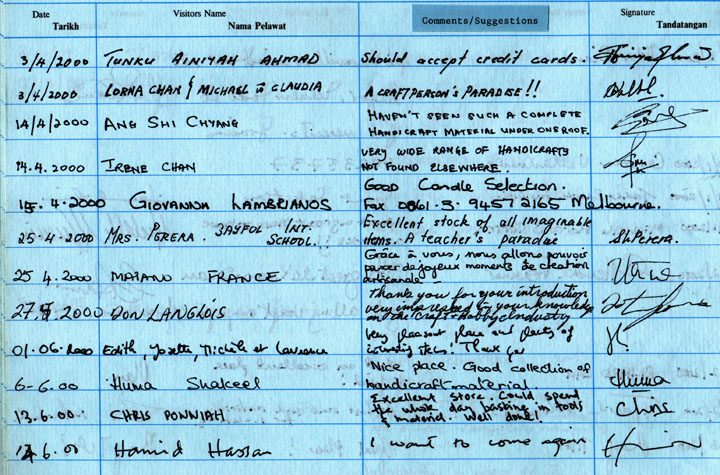 Date
Tarikh
Visitors Name
Nama Pelawat
Comments/Suggestions
Signature
Tandatangan
3/4/2000 TUNKU AINIYAH AHMAD Should accept credit cards.
3/4/2000 LORNA CHAN & MICHAEL CLAUDIA A CRAFTPERSON'S PARADISE!!
14/4/2000 ANG SHI CHYANG HAVEN'T SEEN SUCH A COMPLETE
HANDICRAFT MATERIAL UNDER ONE ROOF.
14.4.2000 IRENE CHAN VERY WIDE RANGE OF HANDICRAFTS
NOT FOUND ELSEWHERE.
15.4.2000 GIOVANNA LAMBRIANOS Good Candle Selection.
Fax 0061.3.9457 2165 Melbourne.
25-4-2000 MRS. PERERA. JAYFUL INT.
SCHOOL.
Excellent stock of all imaginable
items. A teacher's paradise ShPerera.
25 4.2000 MAIANO FRANCE Grâce à vous, nous allons pouvoir
passer de joyeux moments de création
artisanale
27 5.2000 DON LANGLOIS Thank you for your introduction
very impressed by your knowledge
on the Craft & Hobby Industry
01.06.2000 Edith, Josette, Michèle et Laurence Very pleasant place and plenty of
interesting items! Thank you
6-6.00 Huma Shakeel Nice place. Good collection of
handicraft material. Huma
13.6.00 CHRIS PONNIAH Excellent store. Could spend
the whole day basking in tools
& material. Well done! Chris
6.00 Hamid Hassan I want to come again